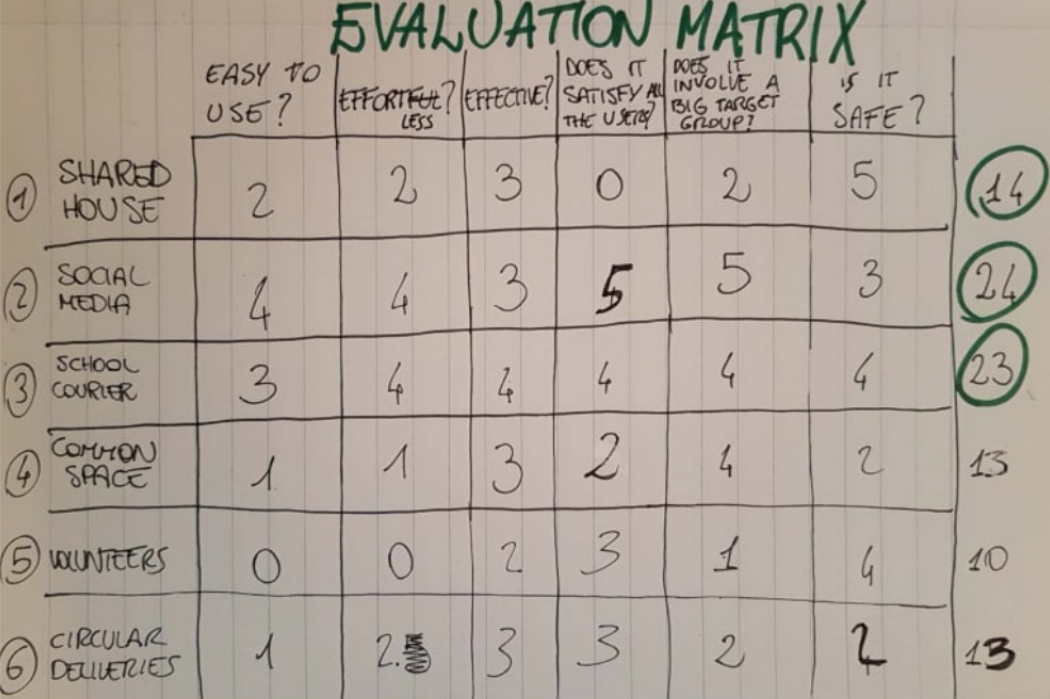 EVALUATION MATRIX
EASY TO USE? EFFORTFUL LESS? EFFECTIVE? DOES IT SATISFY ALL THE USERS? DOES IT INVOLVE A BIG TARGET GROUP? IS IT SAFE?
1 SHARED HOUSE 2 2 3 0 2 5 14
2 SOCIAL MEDIA 4 4 3 5 5 3 24
3 SCHOOL COURIER 3 4 4 4 4 4 23
4 COMMON SPACE 1 1 3 2 4 2 13
5 VOLUNTEERS 0 0 2 3 1 4 10
6 CIRCULAR DELIVERIES 1 2. 3 3 2 2 13